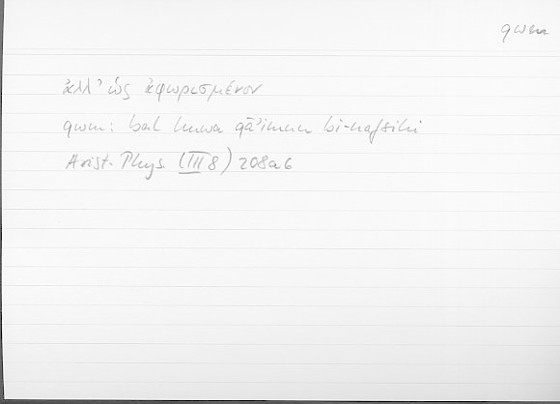 qwm
ἀλλ' ὡς ἀφωρισμένον
qwm: bal huwa qāʾimun bi-nafsihi
Arist. Phys. (III 8) 208a6